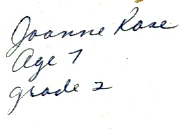 Joanne Rose
Age 7
grade 2